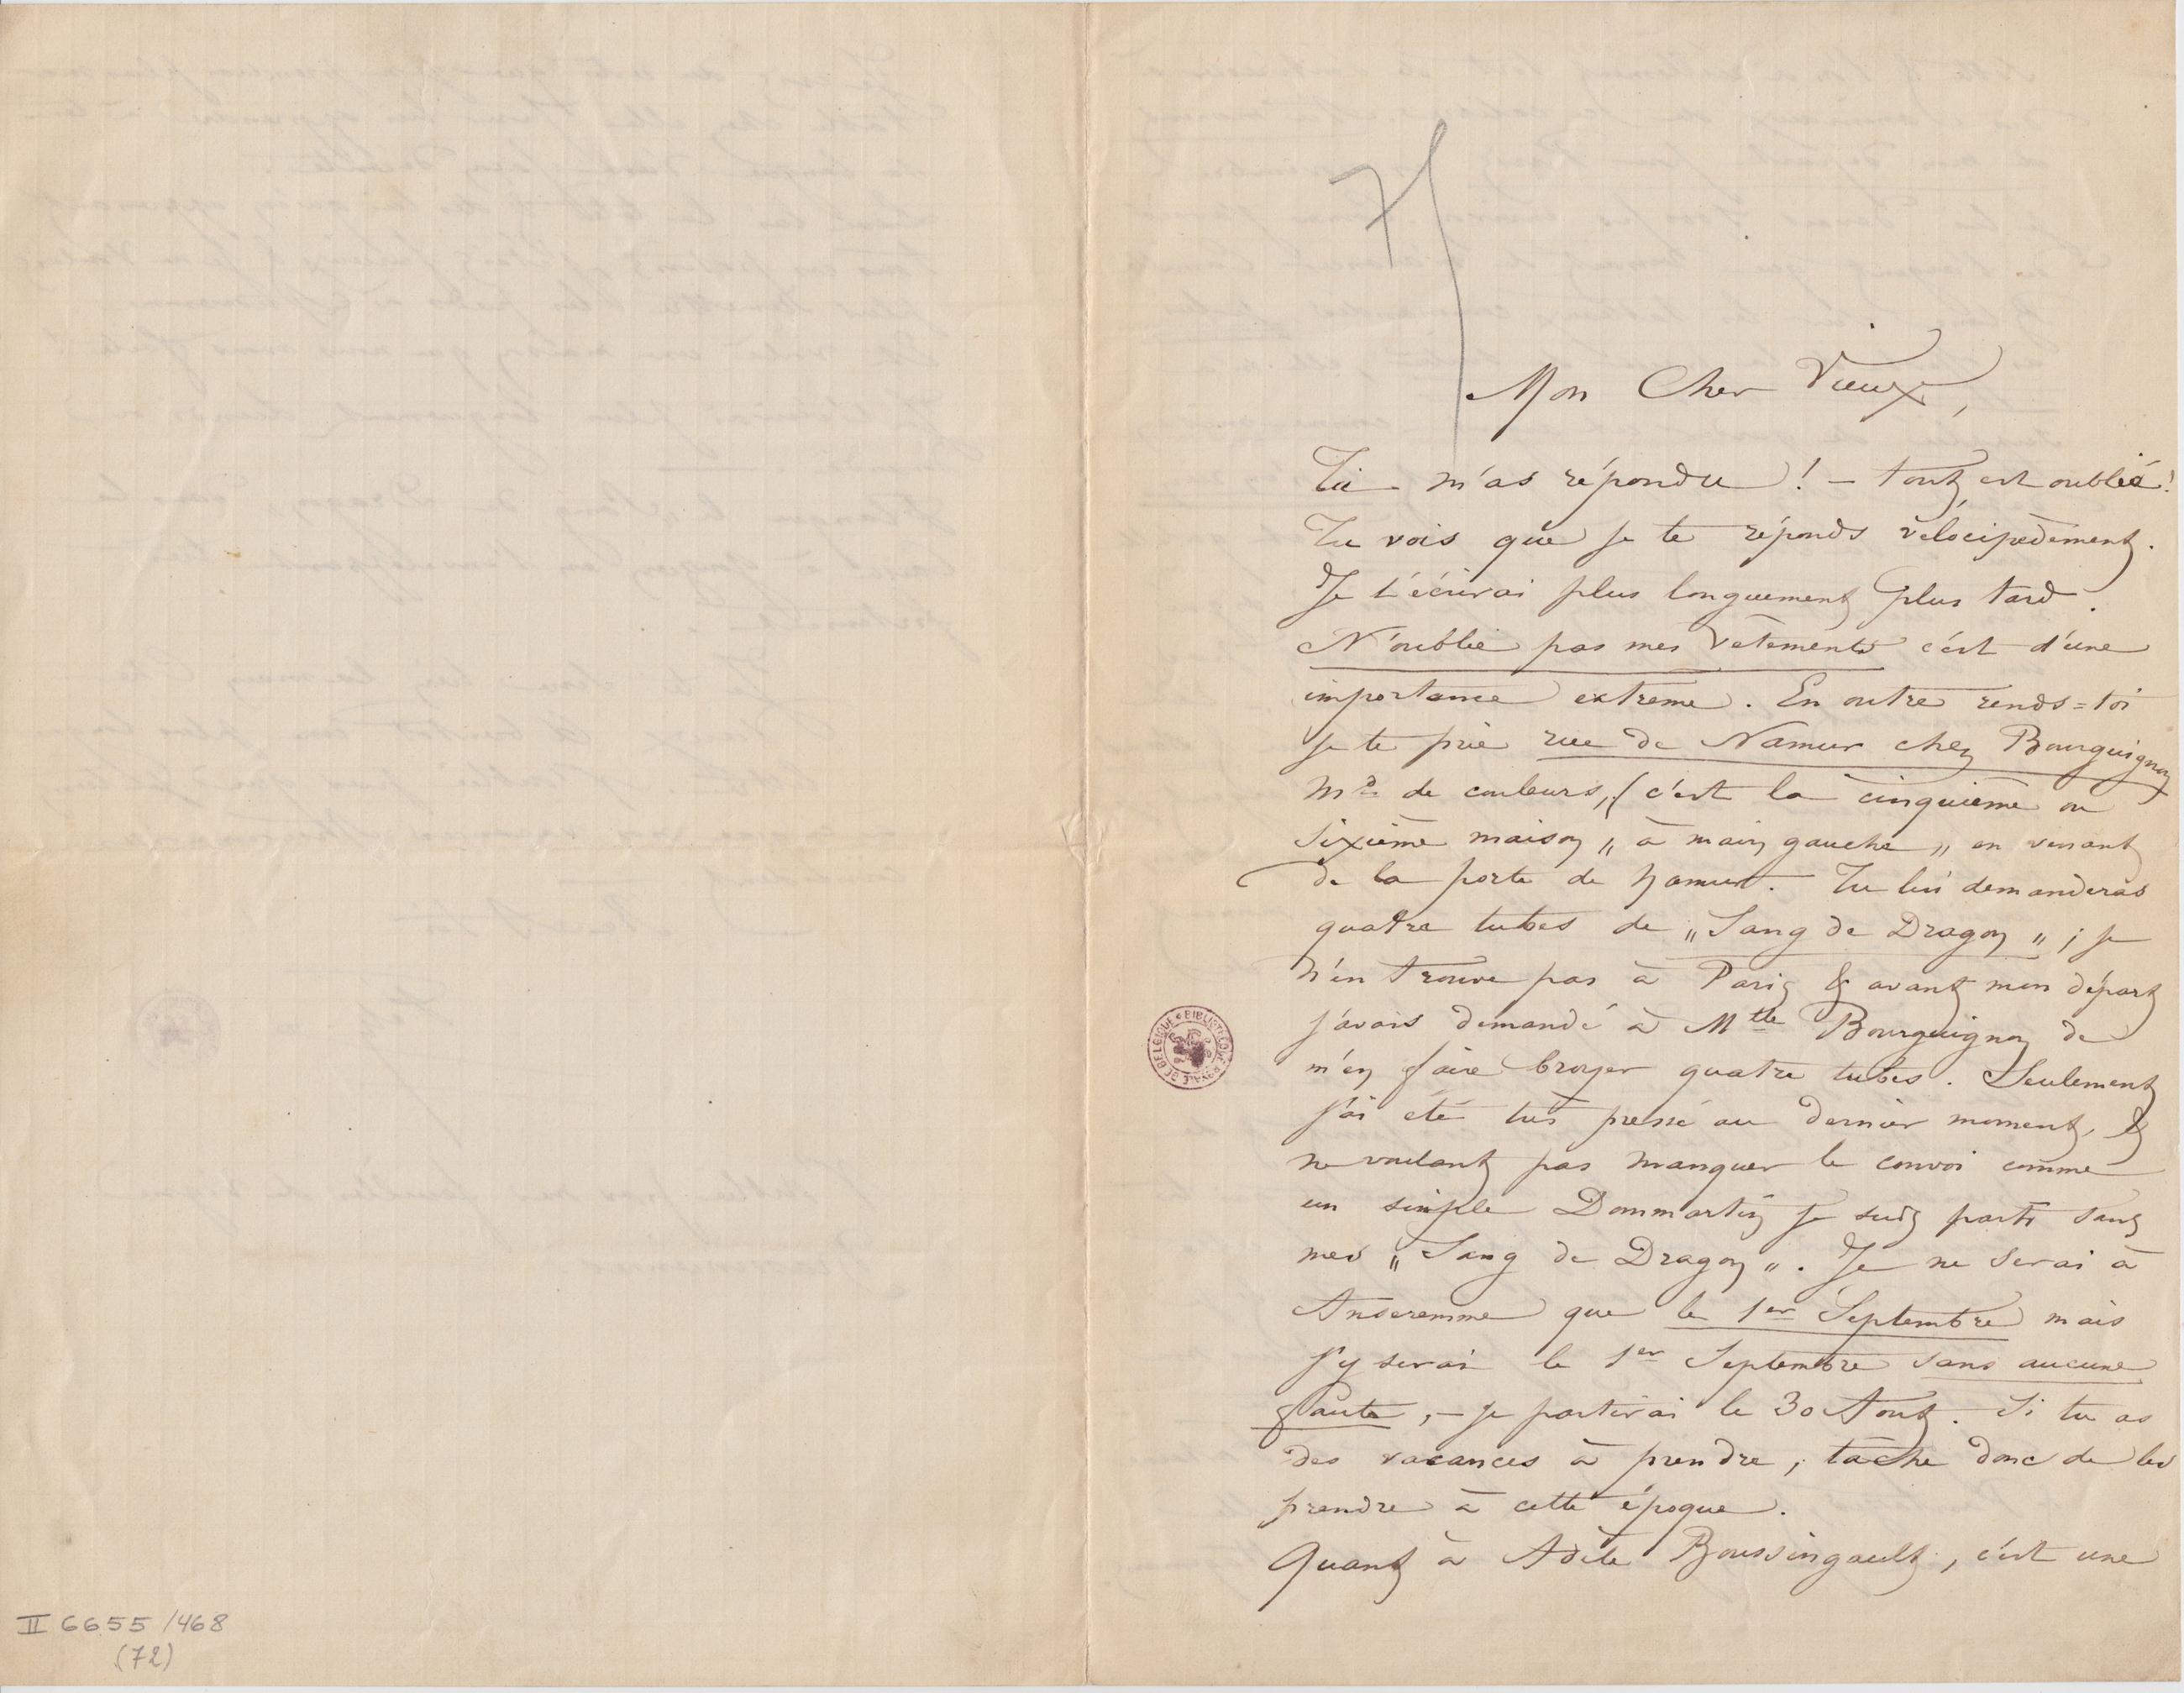 71
Mon Cher Vieux,
Tu m'as répondu ! — tout est oublié !
Tu vois que je te réponds vélocipèdement.
Je t'écrirai plus longuement plus tard.
N'oublie pas mes vêtements c'est d'une
importance extrême. En outre rends=toi
je te prie rue de Namur chez Bourguignon
Md de couleurs, (c'est la cinquième ou
sixième maison „ à main gauche „ en venant
de la porte de Namur. Tu lui demanderas
quatre tubes de „ Sang de Dragon „ ; je
n'en trouve pas à Paris & avant mon départ
j'avais demandé à Mlle Bourguignon de
m'en faire broyer quatre tubes. Seulement
j'ai été très pressé au dernier moment, &
ne voulant pas manquer le convoi comme
un simple Dommartin je suis parti sans
mes „ Sang de Dragon „. Je ne serai à
Anseremme que le 1er Septembre mais
j'y serai le 1er Septembre sans aucune
faute, — je partirai le 30 Aout. Si tu as
des vacances à prendre, tâche donc de les
prendre à cette époque.
Quant à Adèle Boussingault, c'est une
BIBLIOTHEQUE ROYALE DE BELGIQUE
II 6655 /468
(72)